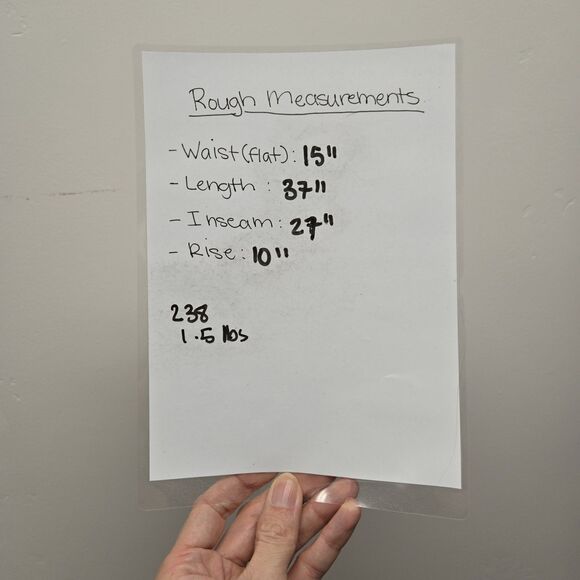 Rough Measurements
- Waist(flat): 15"
- Length : 37"
- Inseam: 27"
- Rise: 10"
238
1.5 lbs